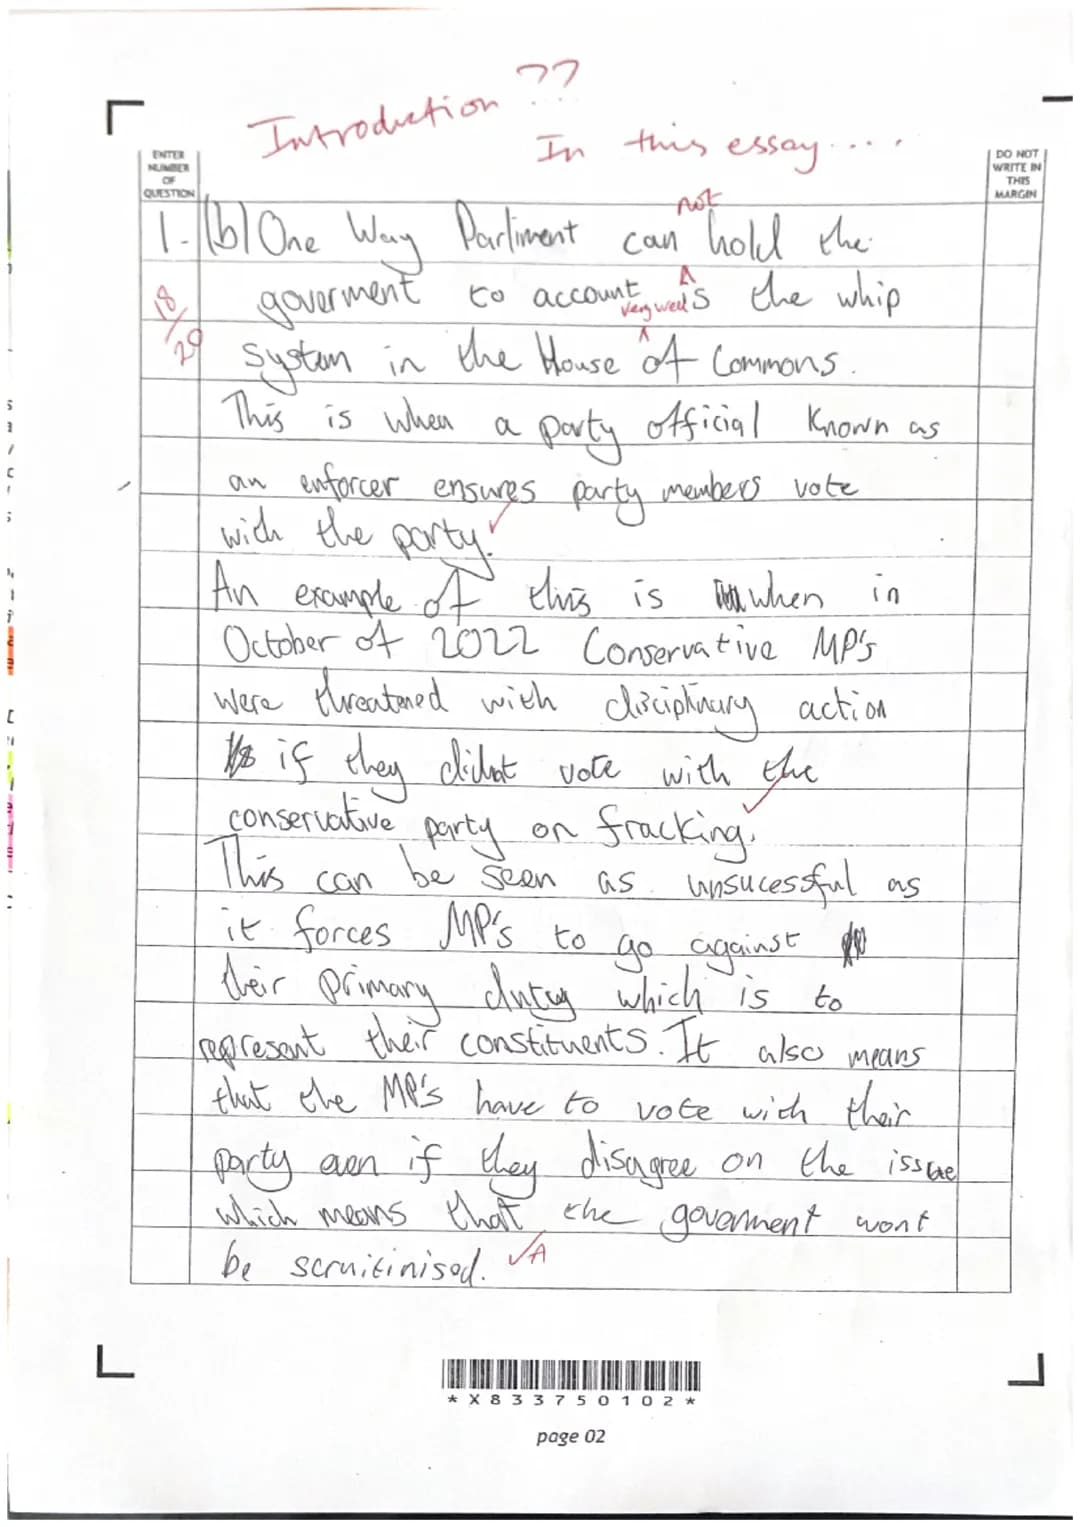 Introduction ??
In this essay....
ENTER
NUMBER
OF
QUESTION
DO NOT
WRITE IN
THIS
MARGIN
not
1. (b) One Way Parliment can hold the
18/20
goverment to account very well is the whip
system in the House of Commons.
This is when a party official known as
an enforcer ensures party members vote
with the party.
An example of this is when in
October of 2022 Conservative MP's
were threatened with disciplinary action
if they didnt vote with the
conservative party on fracking.
This can be seen as unsucessful as
it forces MP's to go against
their primary duty which is to
represent their constituents. It also means
that the MP's have to vote with their
party even if they disagree on the issue
which means that the government wont
be scruitinised. A
* X 8 3 3 7 5 0 1 0 2 *
page 02